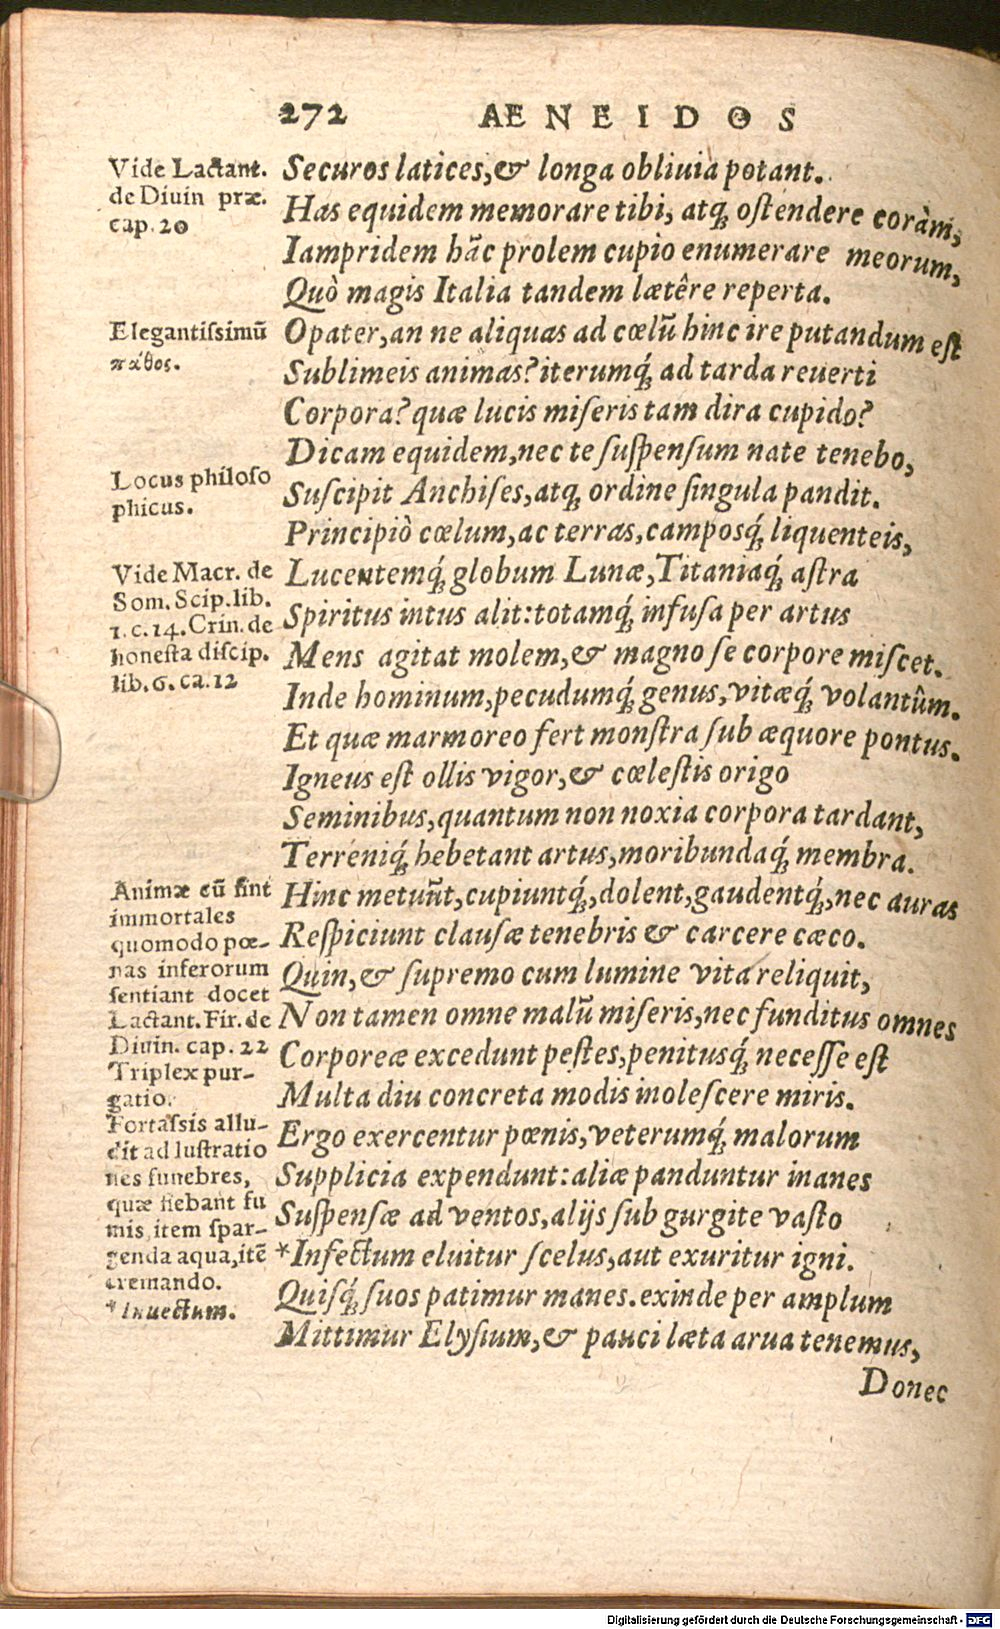 272 AENEIDOS
Vide Lactant.
de Diuin præ.
cap. 20
Securos latices, & longa obliuia potant.
Has equidem memorare tibi, atq; ostendere coràm,
Iampridem hāc prolem cupio enumerare meorum,
Quò magis Italia tandem lætêre reperta.
Elegantissimū
πάθος.
O pater, an ne aliquas ad cœlū hinc ire putandum est
Sublimeis animas? iterumq́; ad tarda reuerti
Corpora? quæ lucis miseris tam dira cupido?
Dicam equidem, nec te suspensum nate tenebo,
Locus philoso
phicus.
Suscipit Anchises, atq; ordine singula pandit.
Principiò cœlum, ac terras, camposq́; liquenteis,
Vide Macr. de
Som. Scip. lib.
1. c. 14. Crin. de
honesta discip.
lib. 6. ca. 12
Lucentemq́; globum Lunæ, Titaniaq́; astra
Spiritus intus alit: totamq́; infusa per artus
Mens agitat molem, & magno se corpore miscet.
Inde hominum, pecudumq́; genus, vitæq́; volantûm.
Et quæ marmoreo fert monstra sub æquore pontus.
Igneus est ollis vigor, & cœlestis origo
Seminibus, quantum non noxia corpora tardant,
Terreniq́; hebetant artus, moribundaq́; membra.
Animæ cū sint
immortales
quomodo pœ-
nas inferorum
sentiant docet
Lactant. Fir. de
Diuin. cap. 22
Triplex pur-
gatio.
Fortassis allu-
dit ad lustratio
nes funebres,
quæ fiebant fu
mis, item spar-
genda aqua, itē
cremando.
* Inuectum.
Hinc metuūt, cupiuntq́;, dolent, gaudentq́;, nec auras
Respiciunt clausæ tenebris & carcere cæco.
Quin, & supremo cum lumine vita reliquit,
Non tamen omne malū miseris, nec funditus omnes
Corporeæ excedunt pestes, penitusq́; necesse est
Multa diu concreta modis inolescere miris.
Ergo exercentur pœnis, veterumq́; malorum
Supplicia expendunt: aliæ panduntur inanes
Suspensæ ad ventos, alijs sub gurgite vasto
*Infectum eluitur scelus, aut exuritur igni.
Quisq́; suos patimur manes. exinde per amplum
Mittimur Elysium, & pauci læta arua tenemus,
Donec
Digitalisierung gefördert durch die Deutsche Forschungsgemeinschaft - DFG